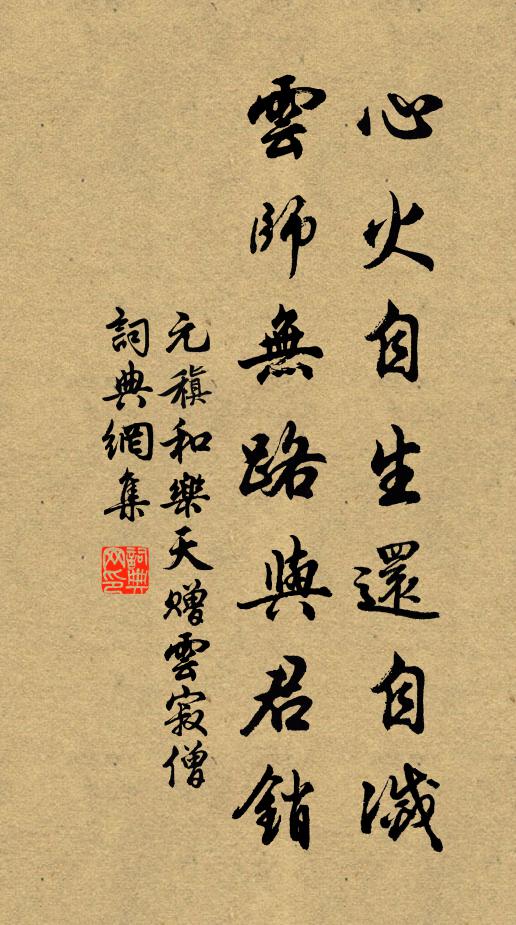 心火自生還自滅
雲師無路與君銷
元稹和樂天贈雲寂僧
詞典網集
詞典網印